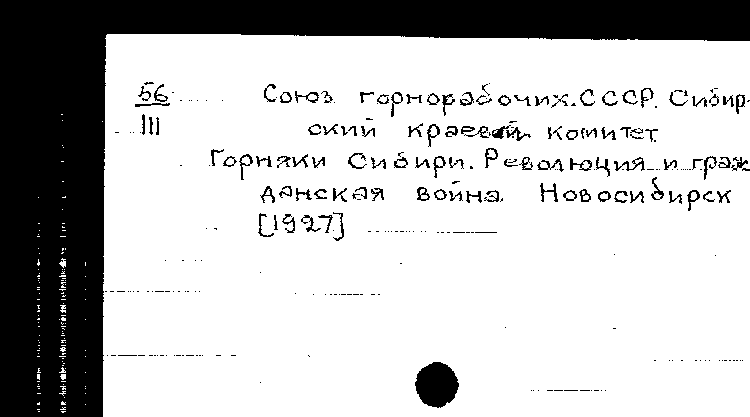 56 Союз горнорабочих. СССР. Сибир-
III ский краевой комитет
Горняки Сибири. Революция и граж
данская война. Новосибирск
[1927]